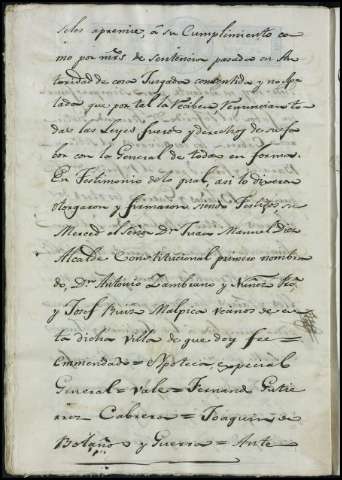 se les apremie, a su Cumplimiento co
mo por mrs. de sentencia pasada en Au
toridad de cosa Juzgada consentida y no ape
lada que por tal la reciben renunciaron to
das las Leyes fueros y derechos de su fa
bor con la General de todas en forma.
En Testimonio de lo qual, asi lo dixeron
otorgaron y firmaron siendo Testigos, su
Merced el Señor Dn. Juan Manuel Diaz
Alcalde Constitucional primero nombra
do, Dn. Antonio Zambrano y Nuñez
y Josef Ruiz Malpica vecinos de es
ta dicha villa de que doy fee =
Enmendado = Ypoteca, especial
General = Vale = Fernand Gutie
rrez Cabrera = Joaquin de
Bolaño y Guerra = Ante